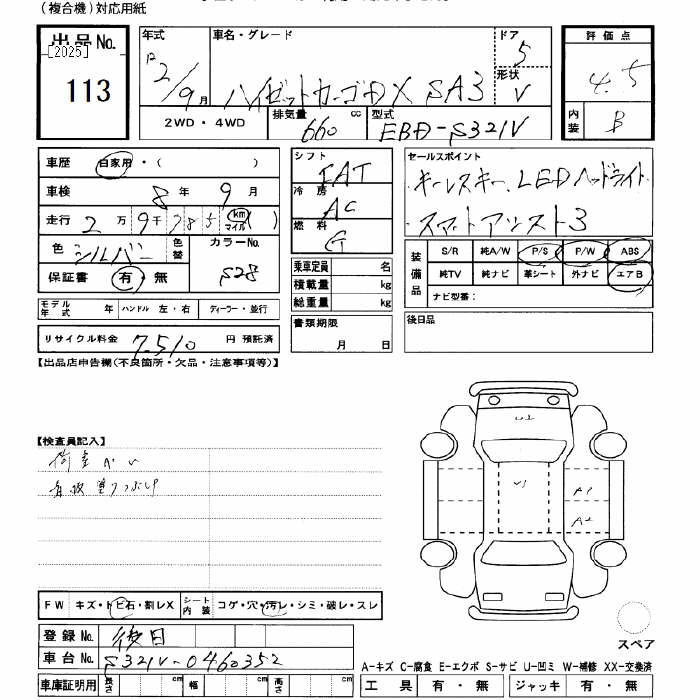 (複合機)対応用紙
出品No. [2025] 113
年式 R2/9月
車名・グレード ハイゼットカーゴDX SA3
ドア 5
形状 V
2WD・4WD
排気量 660 cc
型式 EBD-S321V
評価点 4.5
内装 B
車歴 自家用・( )
車検 8年 9月
走行 2万9千785 km マイル ( )
色 シルバー 色替
カラーNo. S28
保証書 有・無
モデル年式 年 ハンドル 左・右 ディーラー・並行
リサイクル料金 7,510 円 預託済
シフト FAT
冷房 AC
燃料 G
乗車定員 名
積載量 kg
総重量 kg
書類期限 月 日
セールスポイント
キーレスキー、LEDヘッドライト
スマートアシスト3
装備品 S/R 純A/W P/S P/W ABS
純TV 純ナビ 革シート 外ナビ エアB
ナビ型番:
後日品
【出品店申告欄(不良箇所・欠品・注意事項等)】
【検査員記入】
荷室カバ
U1
A1
A2
FW キズ・トビ石・割レX
シート内装 コゲ・穴・汚レ・シミ・破レ・スレ
登録No. 後日
車台No. S321V-0460352
車庫証明用 長さ cm 幅 cm 高さ cm
スペア
A-キズ C-腐食 E-エクボ S-サビ U-凹ミ W-補修 XX-交換済
工具 有・無 ジャッキ 有・無